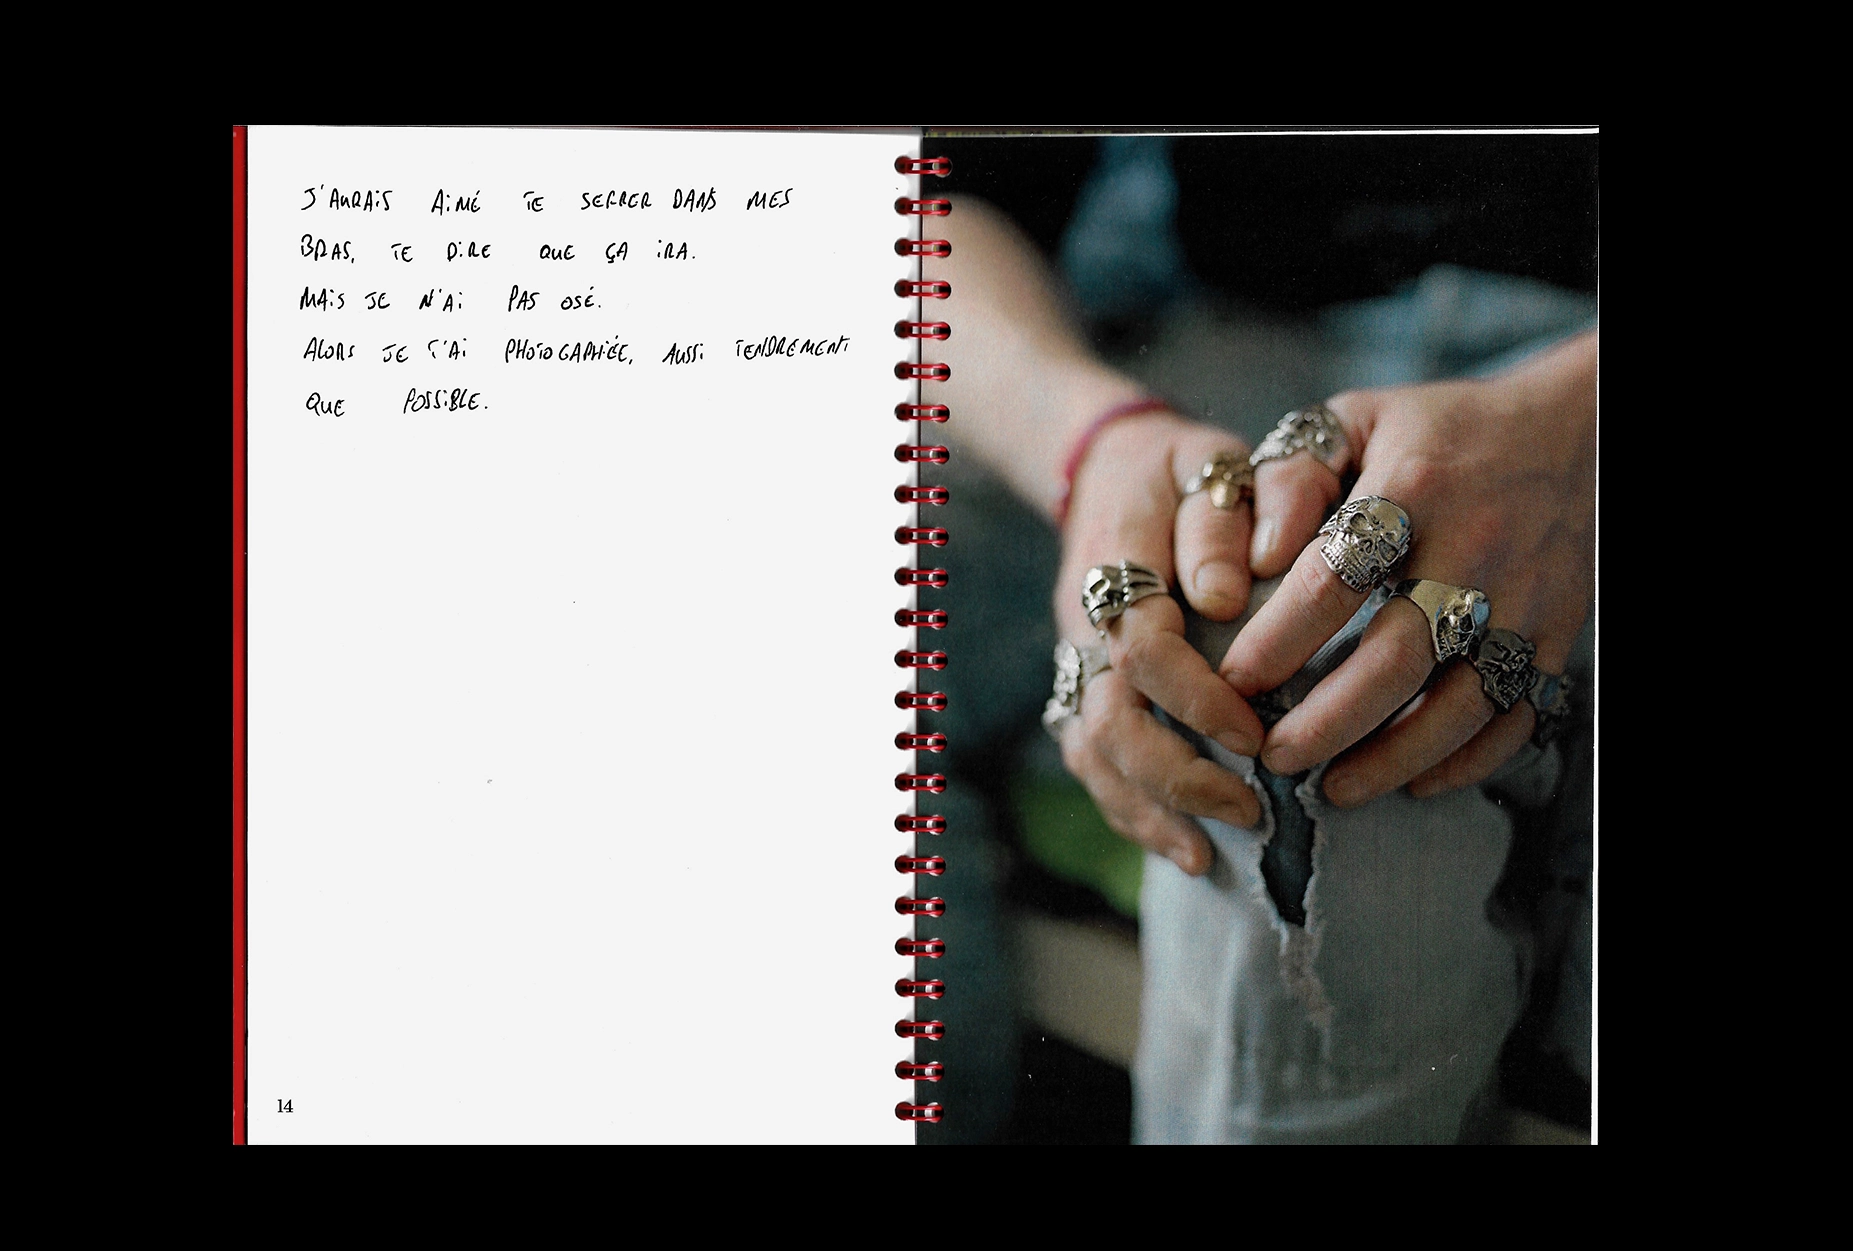 J'AURAIS AIMÉ TE SERRER DANS MES
BRAS, TE DIRE QUE ÇA IRA.
MAIS JE N'AI PAS OSÉ.
ALORS JE T'AI PHOTOGAPHIÉE, AUSSI TENDREMENT
QUE POSSIBLE.
14